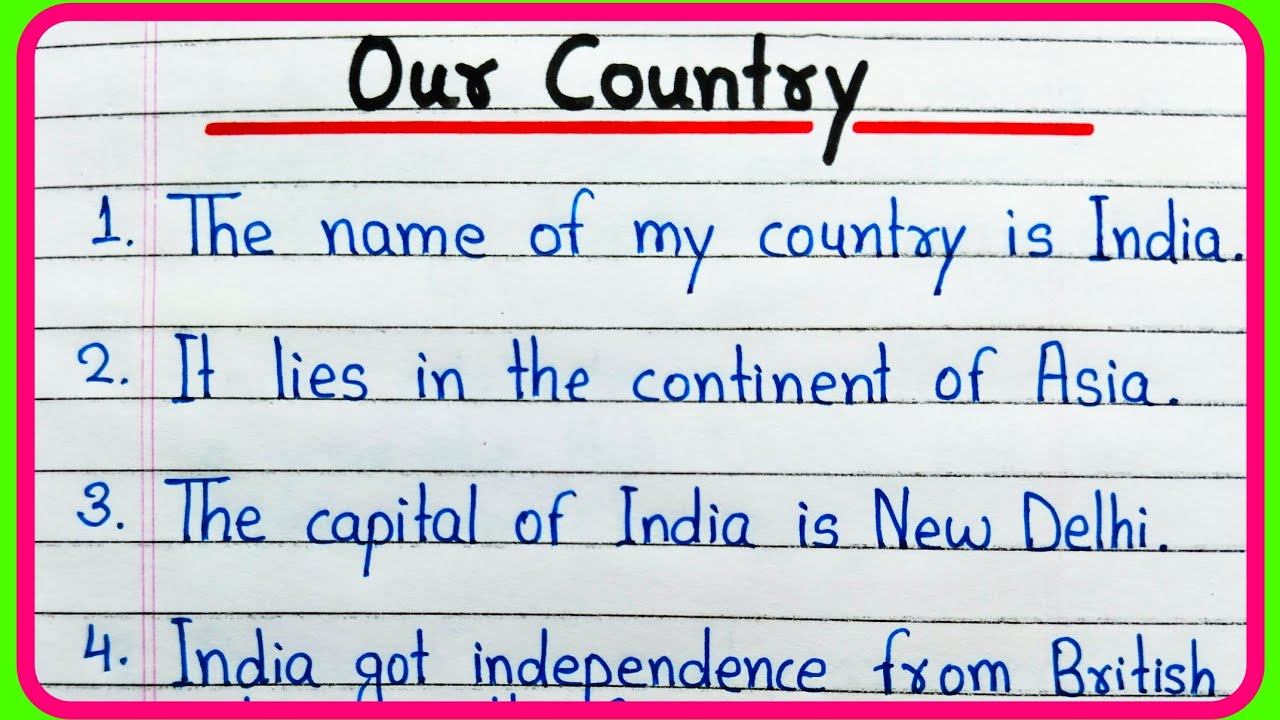 Our Country
1. The name of my country is India.
2. It lies in the continent of Asia.
3. The capital of India is New Delhi.
4. India got independence from British